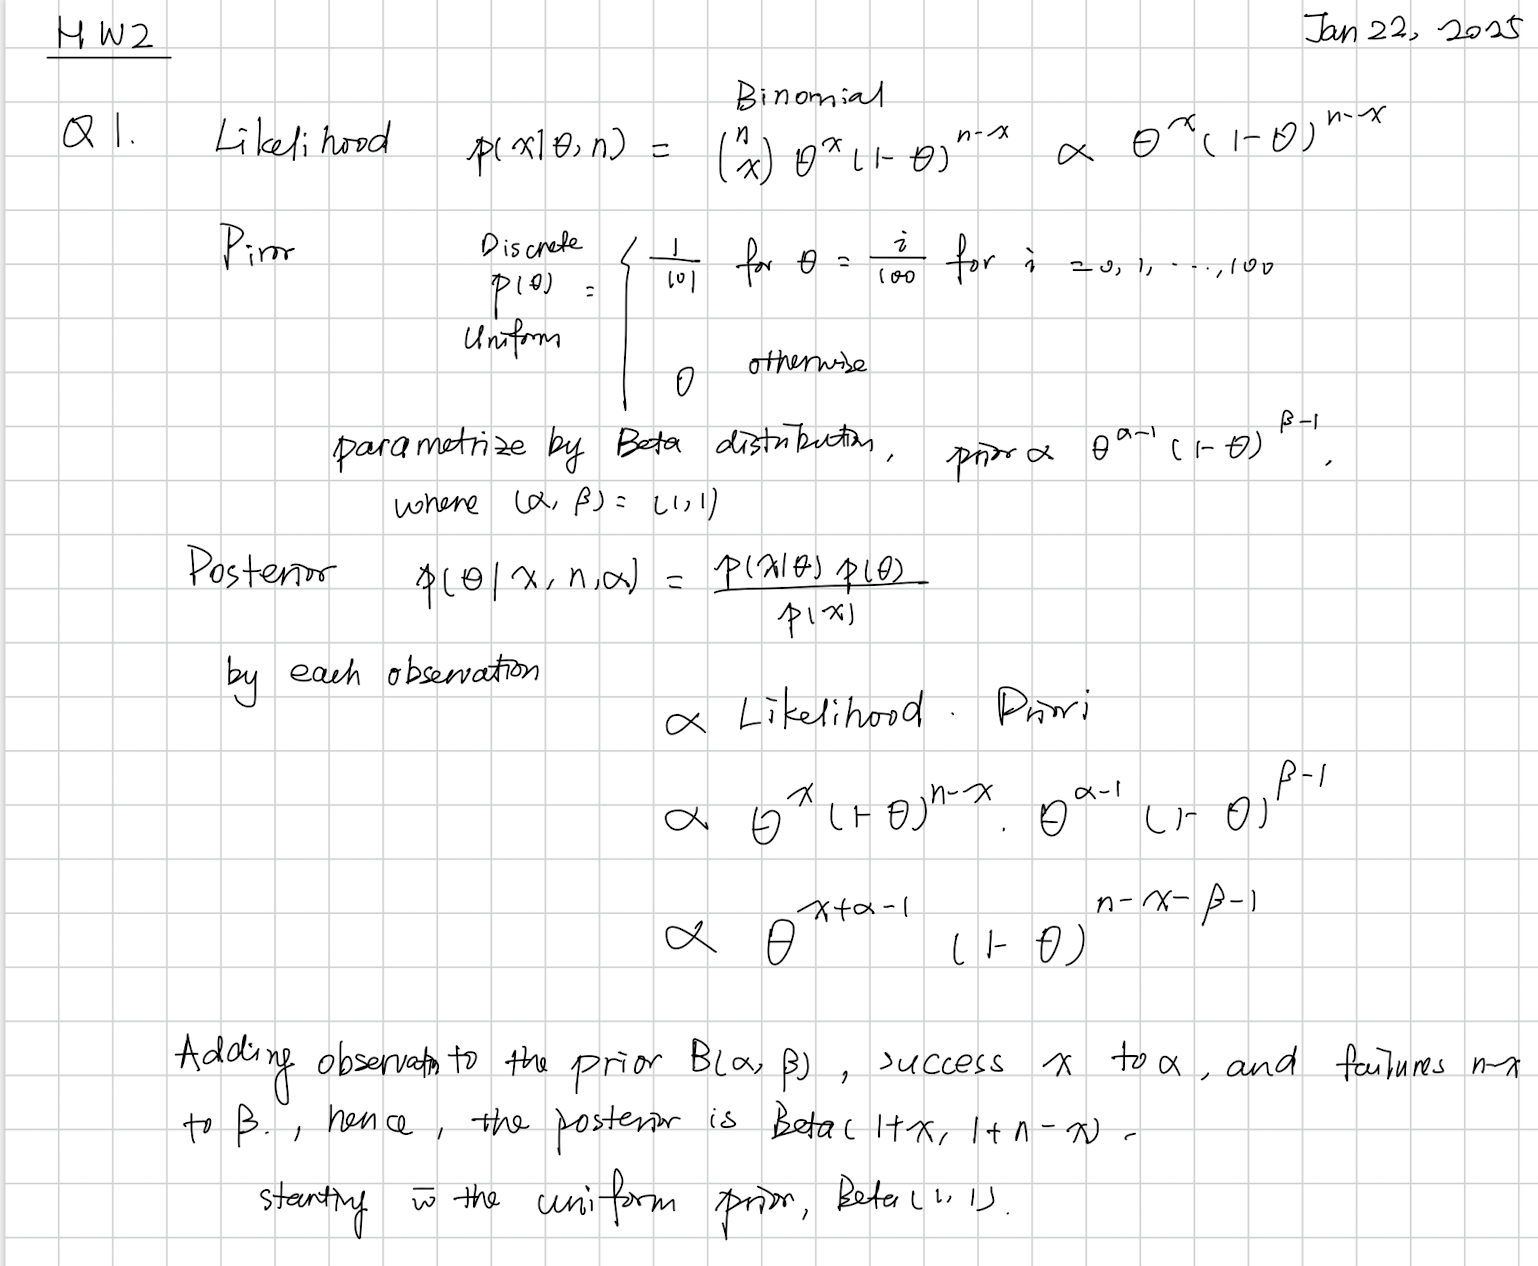 HW2 Jan 22, 2025
Binomial
Q1. Likelihood p(x|θ,n) = (n x) θ^x (1-θ)^{n-x} ∝ θ^x (1-θ)^{n-x}
Piror Discrete p(θ) Uniform = { 1/101 for θ = i/100 for i = 0, 1, ..., 100
0 otherwise
parametrize by Beta distribution, prior ∝ θ^{α-1} (1-θ)^{β-1},
where (α, β) = (1,1)
Posterior p(θ|x,n,α) = p(x|θ) p(θ) / p(x)
by each observation
∝ Likelihood · Priori
∝ θ^x (1-θ)^{n-x} · θ^{α-1} (1-θ)^{β-1}
∝ θ^{x+α-1} (1-θ)^{n-x-β-1}
Adding observatn to the prior B(α, β), success x to α, and failures n-x
to β., hence, the posterior is Beta(1+x, 1+n-x).
starting w̄ the uniform prior, Beta(1,1).